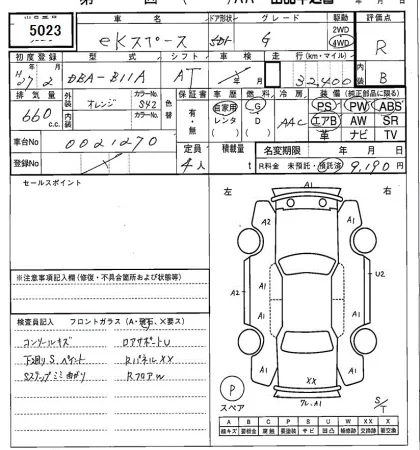 出品番号 車名 ドア形状 グレード 駆動 評価点
5023 eKスペース 5DH G 2WD 4WD R
初度登録 型式 シフト 車検 走行(km・マイル) 内装
H27年2月 DBA-B11A AT 年 月 32,400 B
排気量 外装 カラーNo. 色替 保証書 車歴 燃料 冷房 装備(純正部品に限る)
660 c.c. オレンジ S42 有・無 自家用 レンタ ( ) G D ( ) AAC PS PW ABS
内装 カラーNo. エアB AW SR
革 ナビ TV
車台No 0021270 定員 積載量 名変期限 年 月 日
登録No 4人 t R料金 未預託・預託済 9,190円
セールスポイント
左 右
A1
A2 A1 A1 U2
A2 A1 A1
XX
P
スペア
フレ、A1
S/T
※注意事項記入欄(修復・不具合箇所および状態等)
検査員記入 フロントガラス(A・飛石、×要ス)
コンソールキズ ロアサポートU
下廻りS、ペイント RパネルXX
Sステップミミ曲がり RフロアW
A B C P S U W X XX
線キズ 要板金 腐食 要塗装 サビ 凹凸 補修跡 要交換 交換済